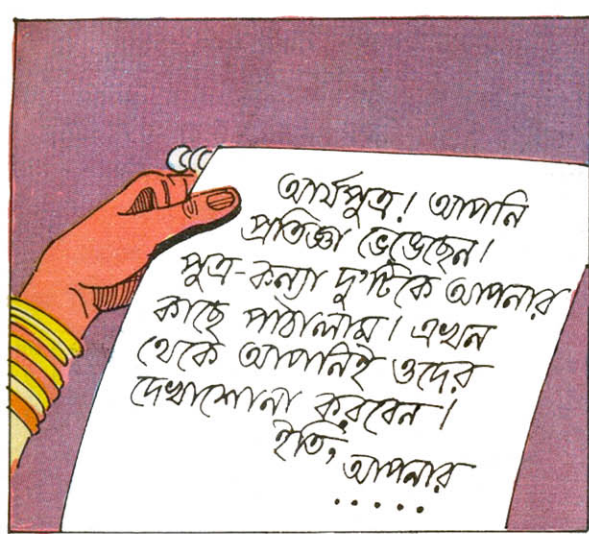 আর্যপুত্র! আপনি
প্রতিজ্ঞা ভেঙেছেন।
পুত্র-কন্যা দু'টিকে আপনার
কাছে পাঠালাম। এখন
থেকে আপনিই ওদের
দেখাশোনা করবেন।
ইতি, আপনার
.....